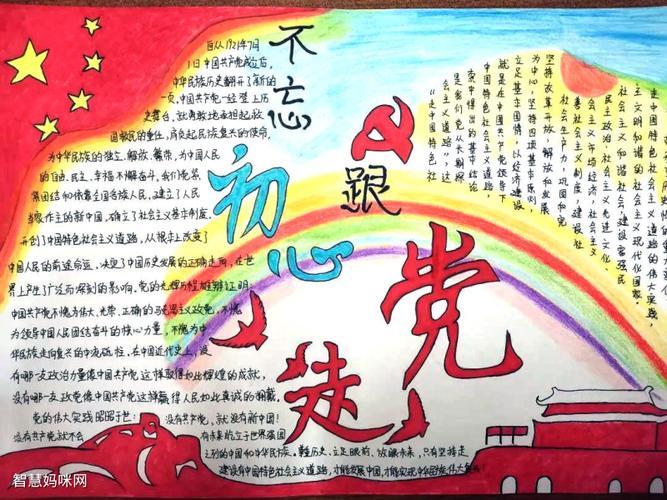 不忘
初心
跟
党
走
自从1921年7月
1日中国共产党成立后,
中华民族历史翻开了新的
一页,中国共产党一经登上历
史舞台,就勇敢地担起救
国救民的重任,肩负起民族复兴的使命,
为中华民族的独立、解放、繁荣,为中国人民
的自由、民主、幸福不懈奋斗,我们党紧
紧团结和依靠全国各族人民,建立了人民
当家作主的新中国,确立了社会主义基本制度,
开创了中国特色社会主义道路,从根本上改变了
中国人民的前途命运,决定了中国历史发展的正确走向,在世
界上产生了广泛而深刻的影响,党的光辉历程雄辩证明:
中国共产党不愧为伟大、光荣、正确的马克思主义政党,不愧
为领导中国人民团结奋斗的核心力量,不愧为中
华民族走向复兴的中流砥柱,在中国近代史上,没
有哪一支政治力量像中国共产党这样取得如此辉煌的成就,
没有哪一支政党像中国共产党这样赢得人民如此真诚的拥戴,
党的伟大实践昭昭于世:没有共产党,就没有新中国!
没有共产党就不会
有卓然屹立于世界强国
之列的中国和中华民族。鞭 历史、立足眼前、放眼未来,只有坚持走
建设有中国特色社会主义道路,才能发展中国,才能实现中华民族伟大复兴!
走中国特色社
会主义道路",这
是我们党从长期探
索中得出的基本结论
中国特色社会主义道路,
就是在中国共产党领导下
立足基本国情,以经济建设
为中心,坚持四项基本原则
坚持改革开放,解放和发展
社会生产力,巩固和完
善社会主义制度,建设社
会主义市场经济、社会主义
民主政治、社会主义先进文化、
社会主义和谐社会,建设富强民
主文明和谐的社会主义现代化国家。
走中国特色社会主义道路的伟大实践,
智慧妈咪网